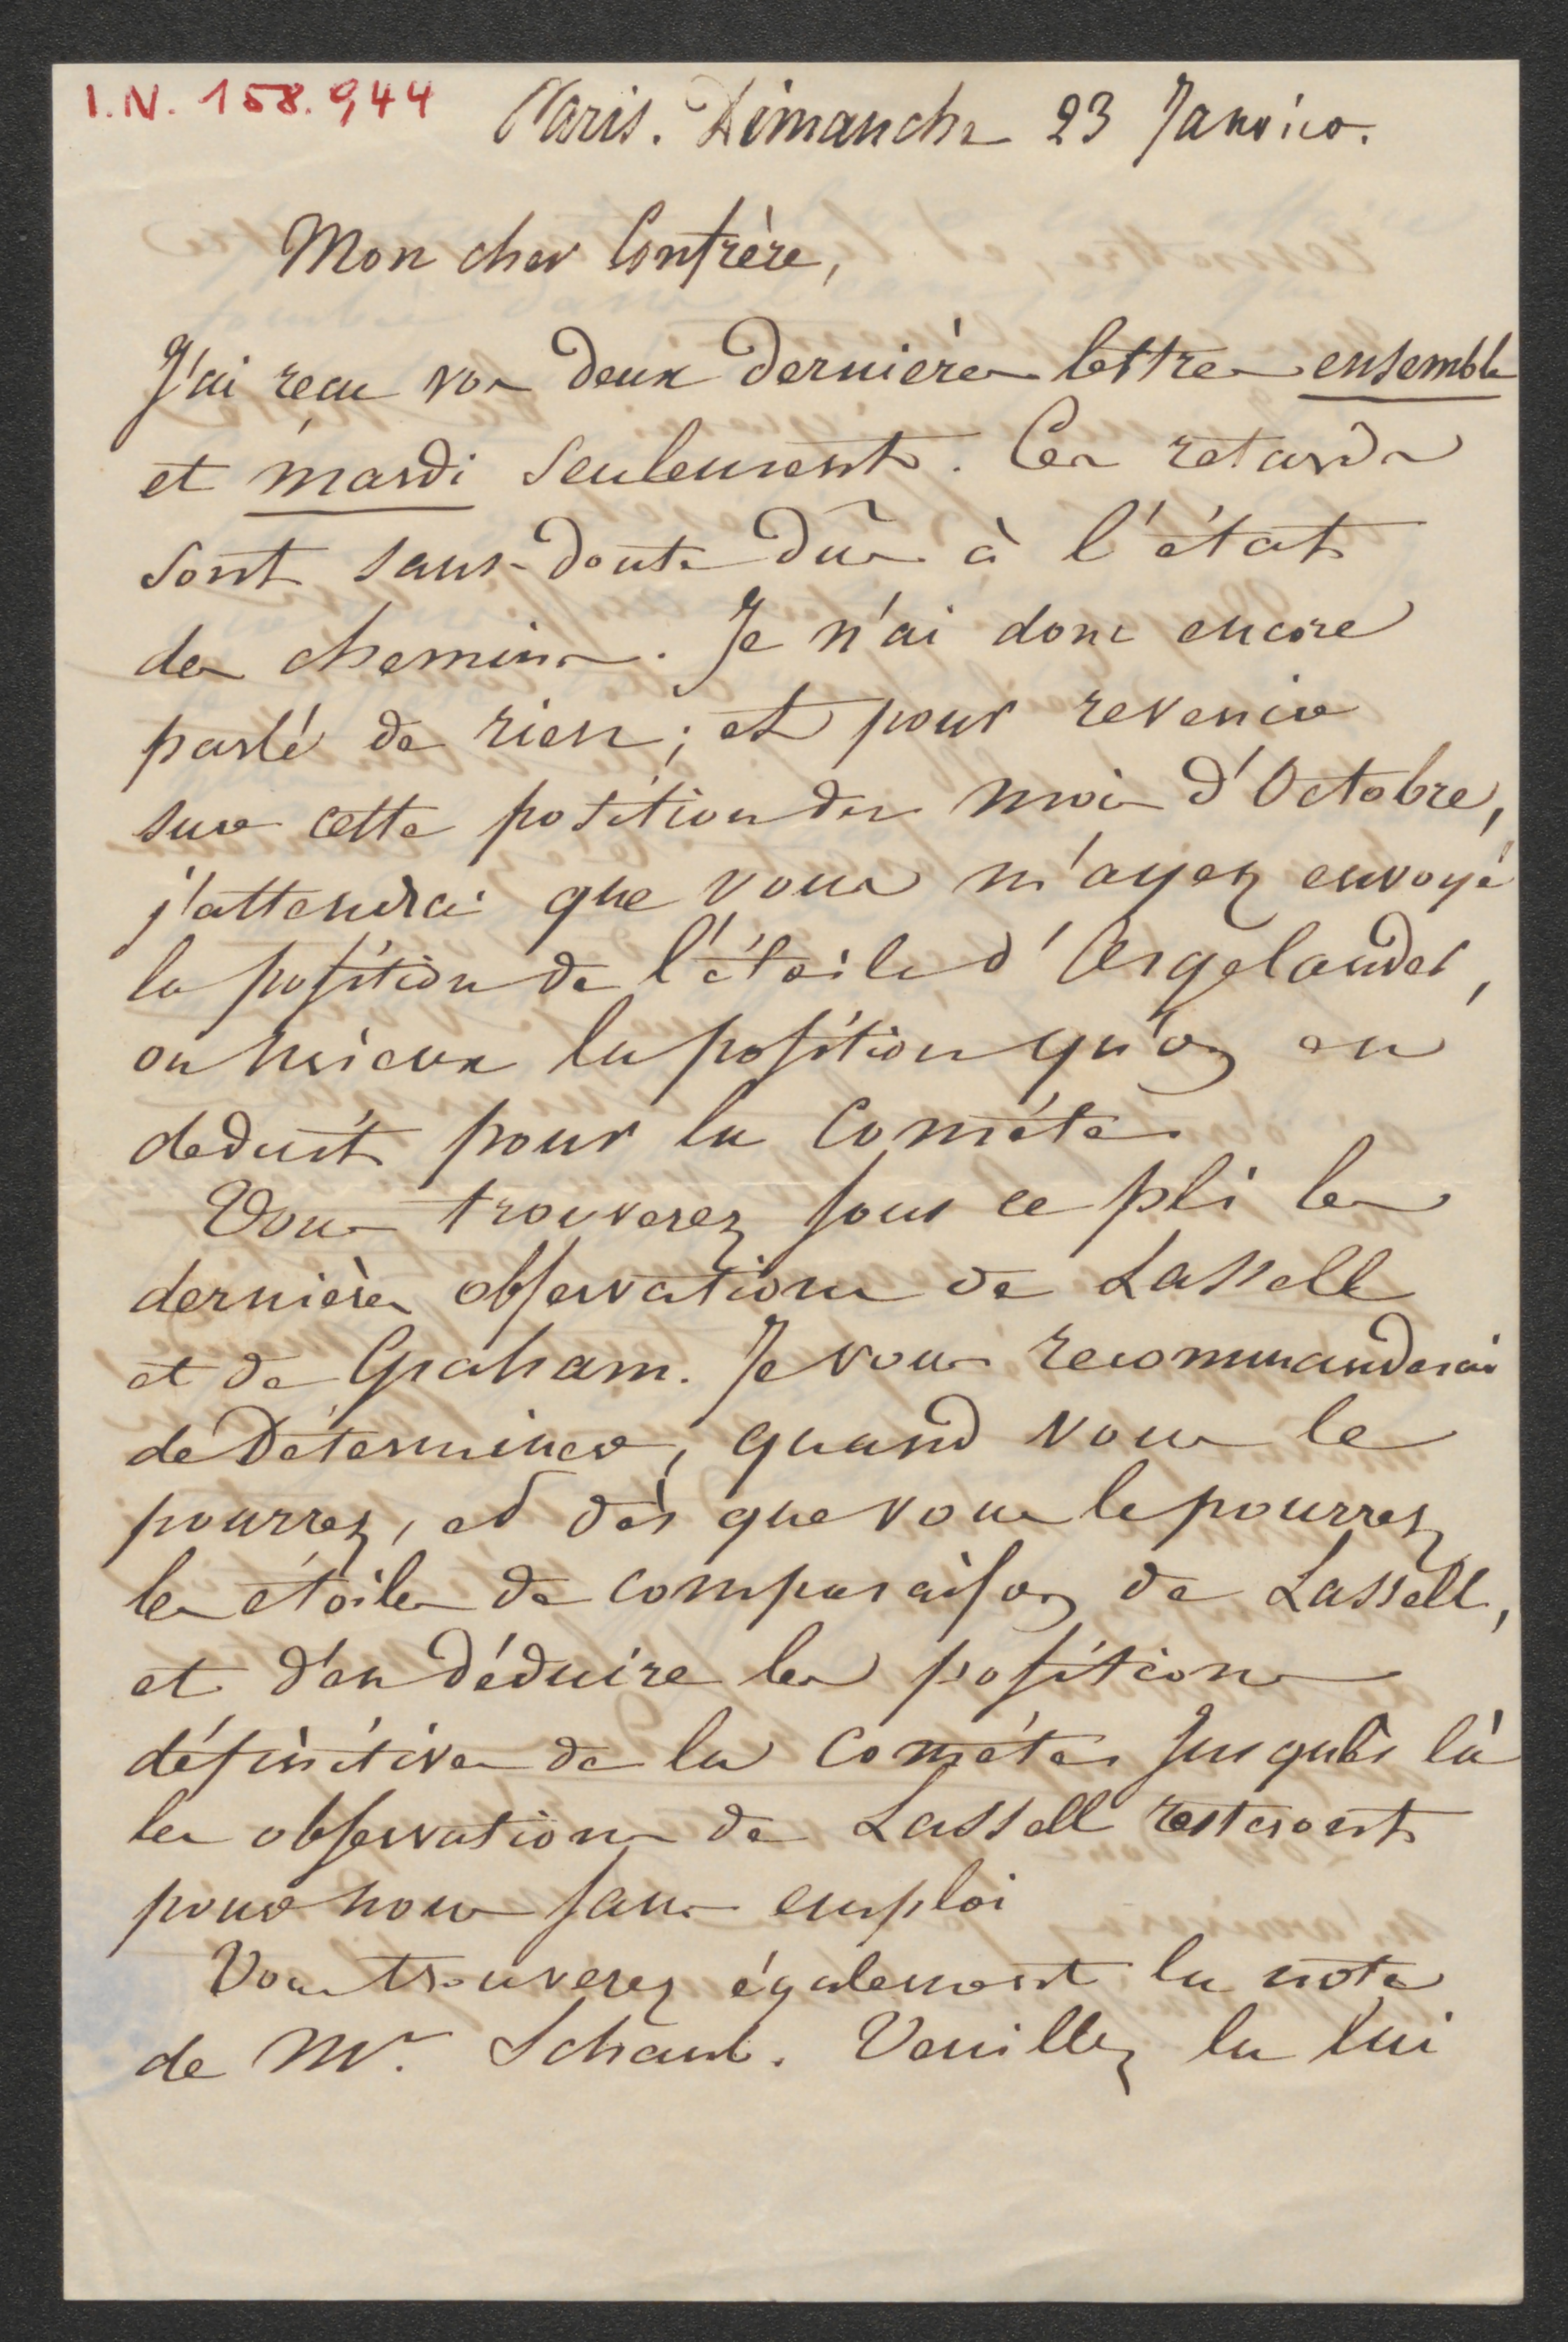 I.N. 158.944
Paris. Dimanche 23 Janvier.
Mon cher Confrère,
J'ai reçu vos deux dernières lettres ensemble
et mardi seulement. Ces retards
sont sans-doute dûs à l'état
des chemins. Je n'ai donc encore
parlé de rien; et pour revenir
sur cette position du mois d'Octobre,
j'attendrai que vous m'ayez envoyé
la position de l'étoile d'Argelander,
ou mieux la position qu'on en
deduit pour la Comète.
Vous trouverez sous ce pli les
dernières observations de Lassell
et de Graham. Je vous recommanderai
de déterminer, quand vous le
pourrez, et dès que vous le pourrez
les étoiles de comparaison de Lassell,
et d'en déduire les positions
définitives de la Comète. Jusques là
les observations de Lassell resteront
pour nous sans emploi
Vous trouverez également la note
de Mr. Schaub. Veuillez la lui